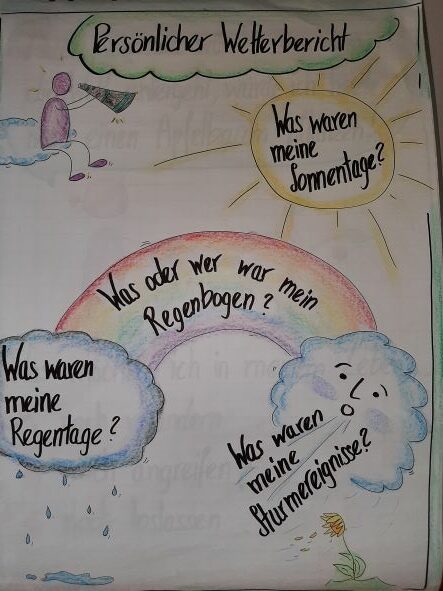 Persönlicher Wetterbericht
Was waren
meine
Sonnentage?
Was oder wer war mein
Regenbogen?
Was waren
meine
Regentage?
Was waren
meine
Sturmereignisse?